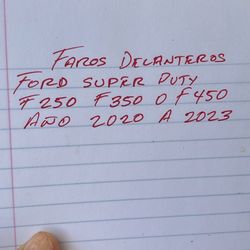 FAROS DELANTEROS
FORD SUPER DUTY
F250 F350 O F450
AÑO 2020 A 2023